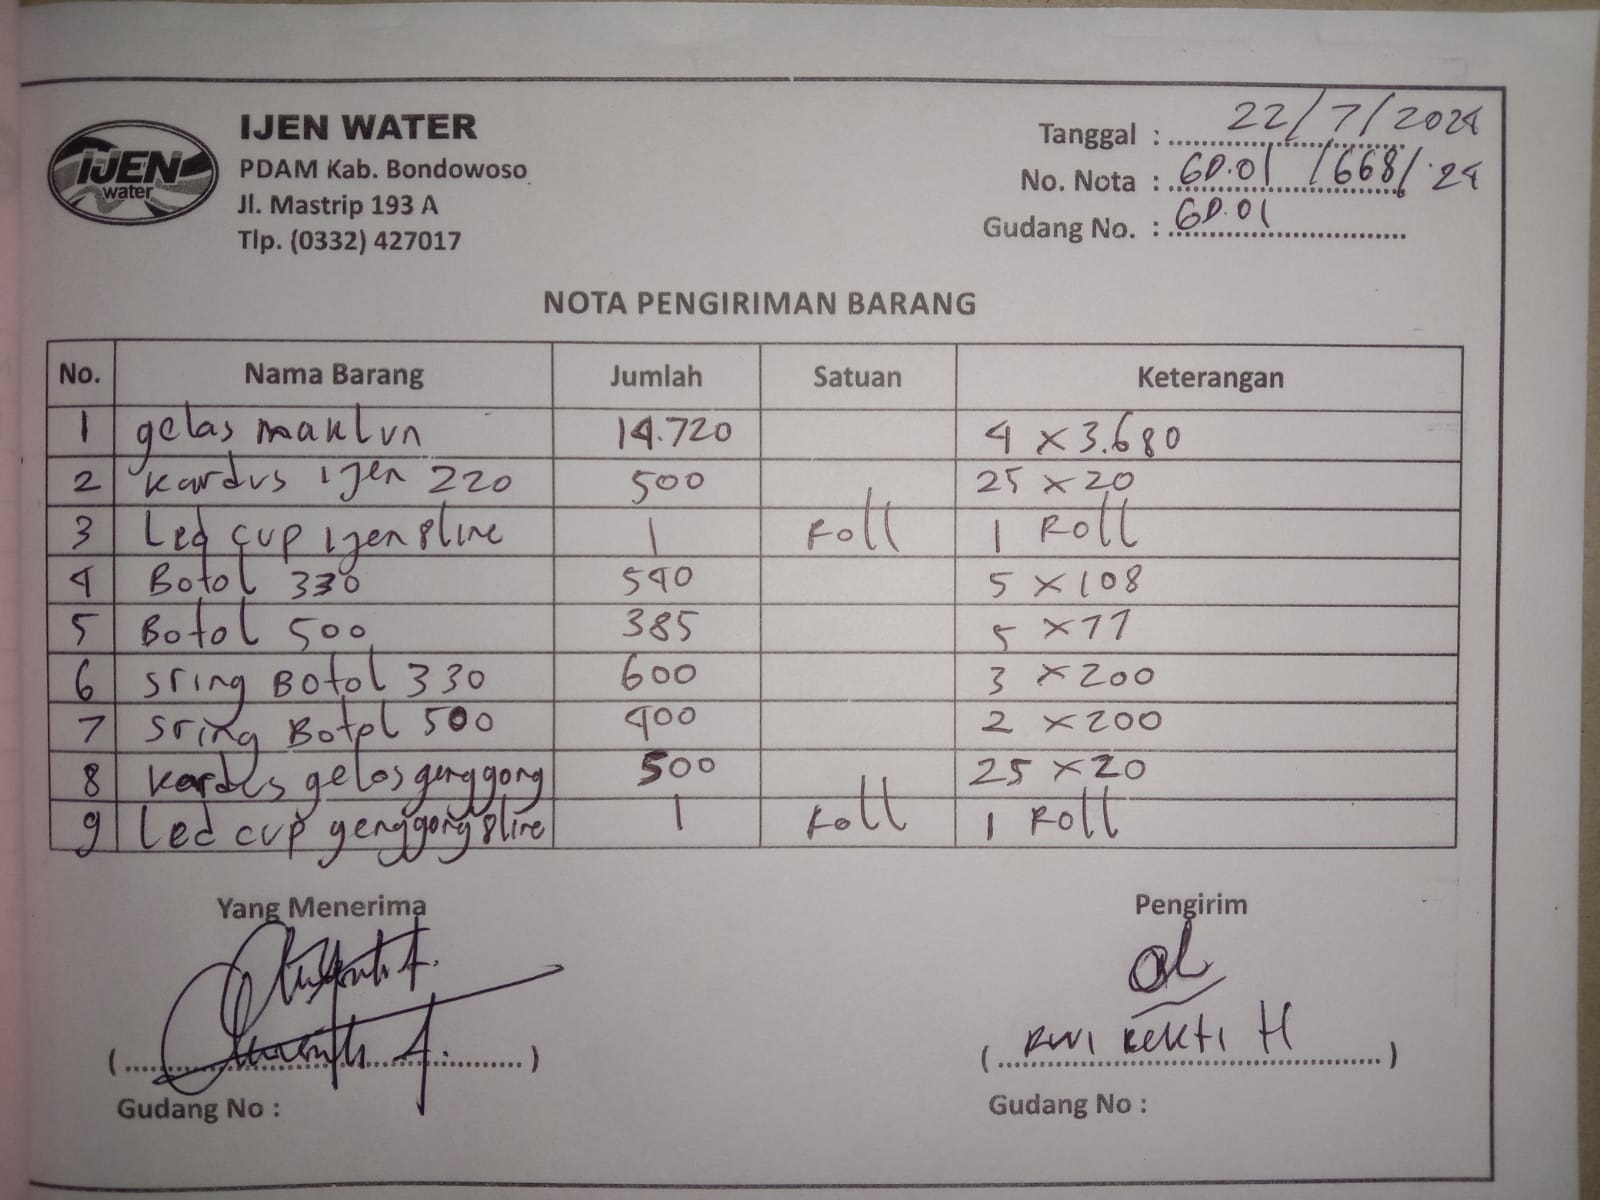 IJEN
water
IJEN WATER
PDAM Kab. Bondowoso
Jl. Mastrip 193 A
Tlp. (0332) 427017
Tanggal : 22/7/2024
No. Nota : GD.01 /668/'24
Gudang No. : GD.01
NOTA PENGIRIMAN BARANG
No. Nama Barang Jumlah Satuan Keterangan
1 gelas maklun 14.720 4 x 3.680
2 kardus ijen 220 500 25 x 20
3 Led cup ijen 8line 1 Roll 1 Roll
4 Botol 330 540 5 x 108
5 Botol 500 385 5 x 77
6 sring Botol 330 600 3 x 200
7 sring Botol 500 400 2 x 200
8 kardus gelas genggong 500 25 x 20
9 Led cup genggong 8line 1 Roll 1 Roll
Yang Menerima Pengirim
H
Gudang No : Gudang No :